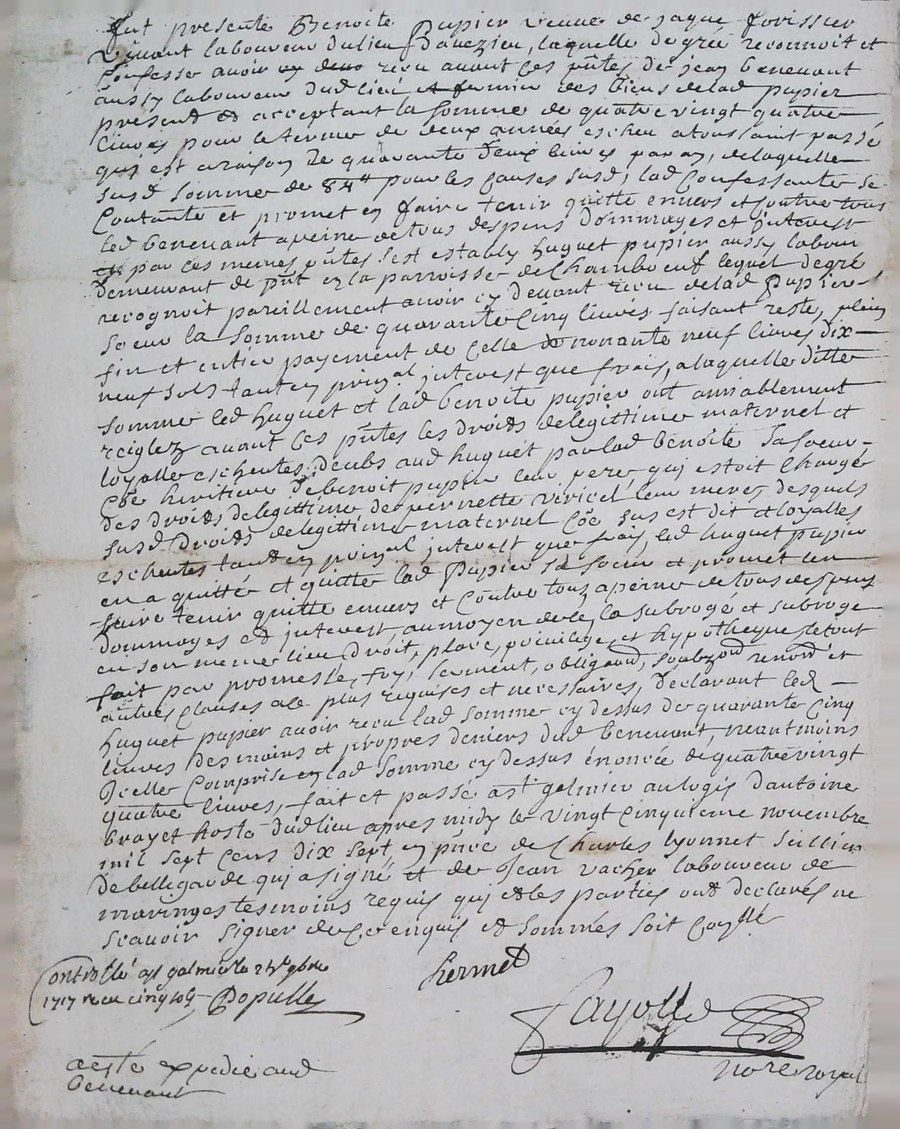 fut presente Benoite Pupier veuve de jaque forissier
vivant laboureur dulieu Bauezieu, laquelle de gré reconnoit et
Confesse avoir cy deva receu avant ces pntes de jean benevant
aussy laboureur dud lieu et fermier des biens delad papier
present et acceptant la somme de quatre vingt quatre
livres pour le terme de deux années escheu a toussaint passé
qui est a raison de quarante deux livres par an, delaquelle
susd somme de 84ᵗᵗ pour les causes susd, lad Confessante se
Contante et promet en faire tenir quitte envers et contre tous
led benevant a peine de tous despens dommages et interest
et par ces memes pntes s'est estably huguet pupier aussy labour
demeurant de pnt en la parroisse de Chambœuf lequel de gré
recognoit pareillement avoir cy devant receu delad Pupier
sœur la somme de quarante Cinq livres faisant reste, plein
fin et entier payement de celle de nonante neuf livres dix
neuf sols tant en prinpal, interest que frais, a laquelle ditte
somme led huguet et lad benoite pupier ont amiablement
reiglez avant ces pntes les droits de legittime maternel et
loyalle escheutes deubs aud huguet par lad benoite sa sœur
Cõe heritiere de benoit pupier leur pere, qui estoit Chargé
des droits de legittime de pernette vericel leur mere, desquels
susd droits de legittime maternel Cõe sus est dit et loyalles
escheutes tant en prinpal interest que frais, led huguet pupier
en a quitté et quitte lad Pupier sa sœur et promet l'en
faire tenir quitte envers et Contre tous a peine de tous despens
dommages et interest, au moyen de ce la subrogé et subroge
en son meme lieu, droit, place, privilege, et hypotheque le tout
fait par promesse, foy, serment, obligaon, soubzon renon et
autres clauses a ce plus requises et necessaires, declarant led
huguet papier avoir receu lad somme cy dessus de quarante Cinq
livres des mains et propres deniers dud benevant, neantmoins
Icelle Comprise en lad somme cy dessus énoncée de quatre vingt
quatre livres, fait et passé a st galmier au logis d'antoine
brayet hoste dud lieu apres midy le vingt Cinquieme novembre
mil sept cens dix sept en pñce de Charles Lyonnet sellier
de bellegarde qui a signé et de Jean vacher laboureur de
maringes tesmoins requis qui et les parties ont declarés ne
scavoir signer de Ce enquis et sommés soit Conllé
hermet
Controllé a st galmier le 29bre
1717 receu cinq sols Populle
Fayolle
Nore royal
a esté expedié aud
benevant